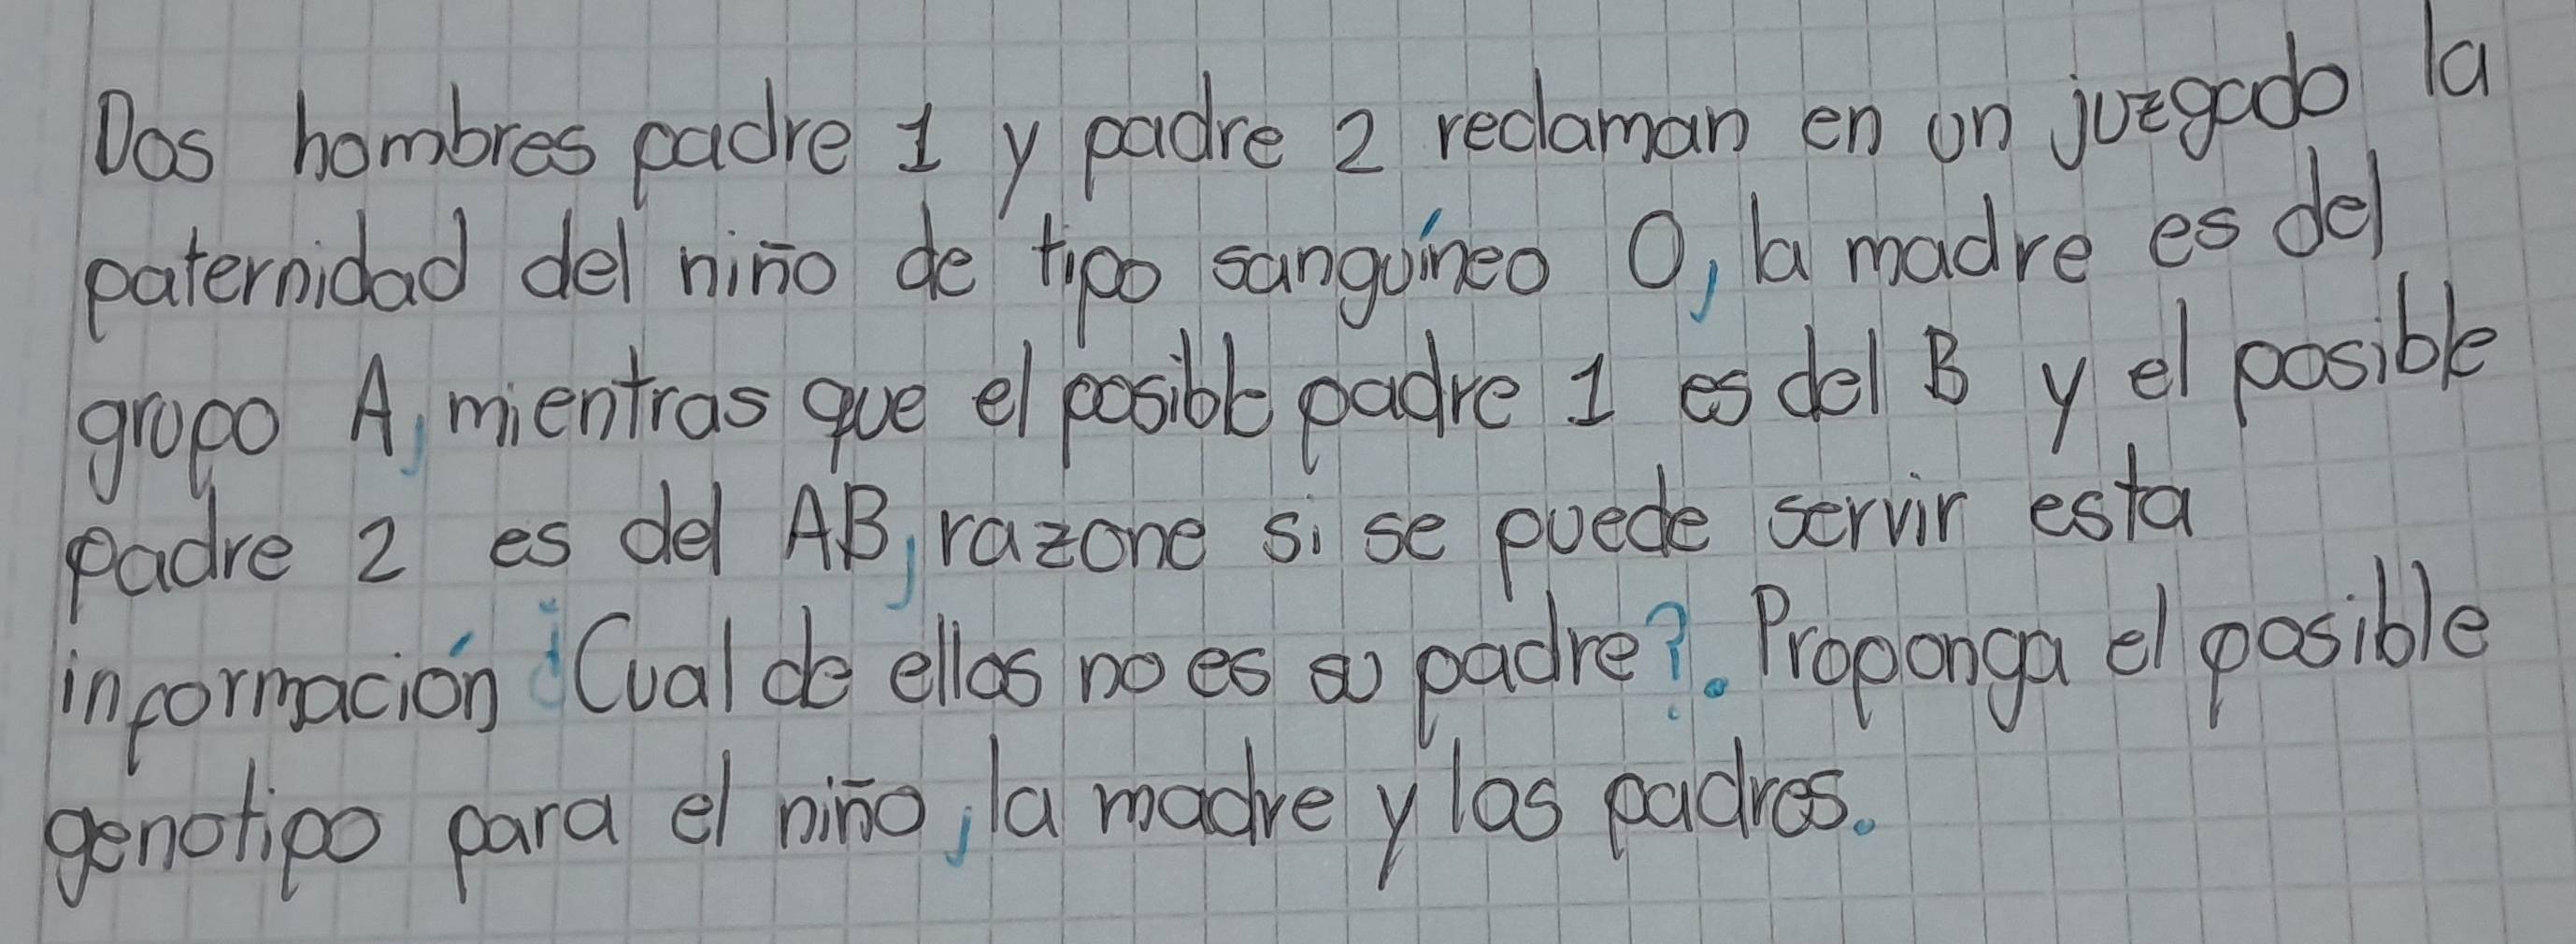 Dos hombres padre 1 y padre 2 reclaman en un juzgado la
paternidad del niño de tipo sanguíneo O, la madre es del
grupo A, mientras que el posible padre 1 es del B y el posible
padre 2 es del AB, razone si se puede servir esta
información ¿Cual de ellos no es su padre?. Proponga el posible
genotipo para el niño, la madre y los padres.